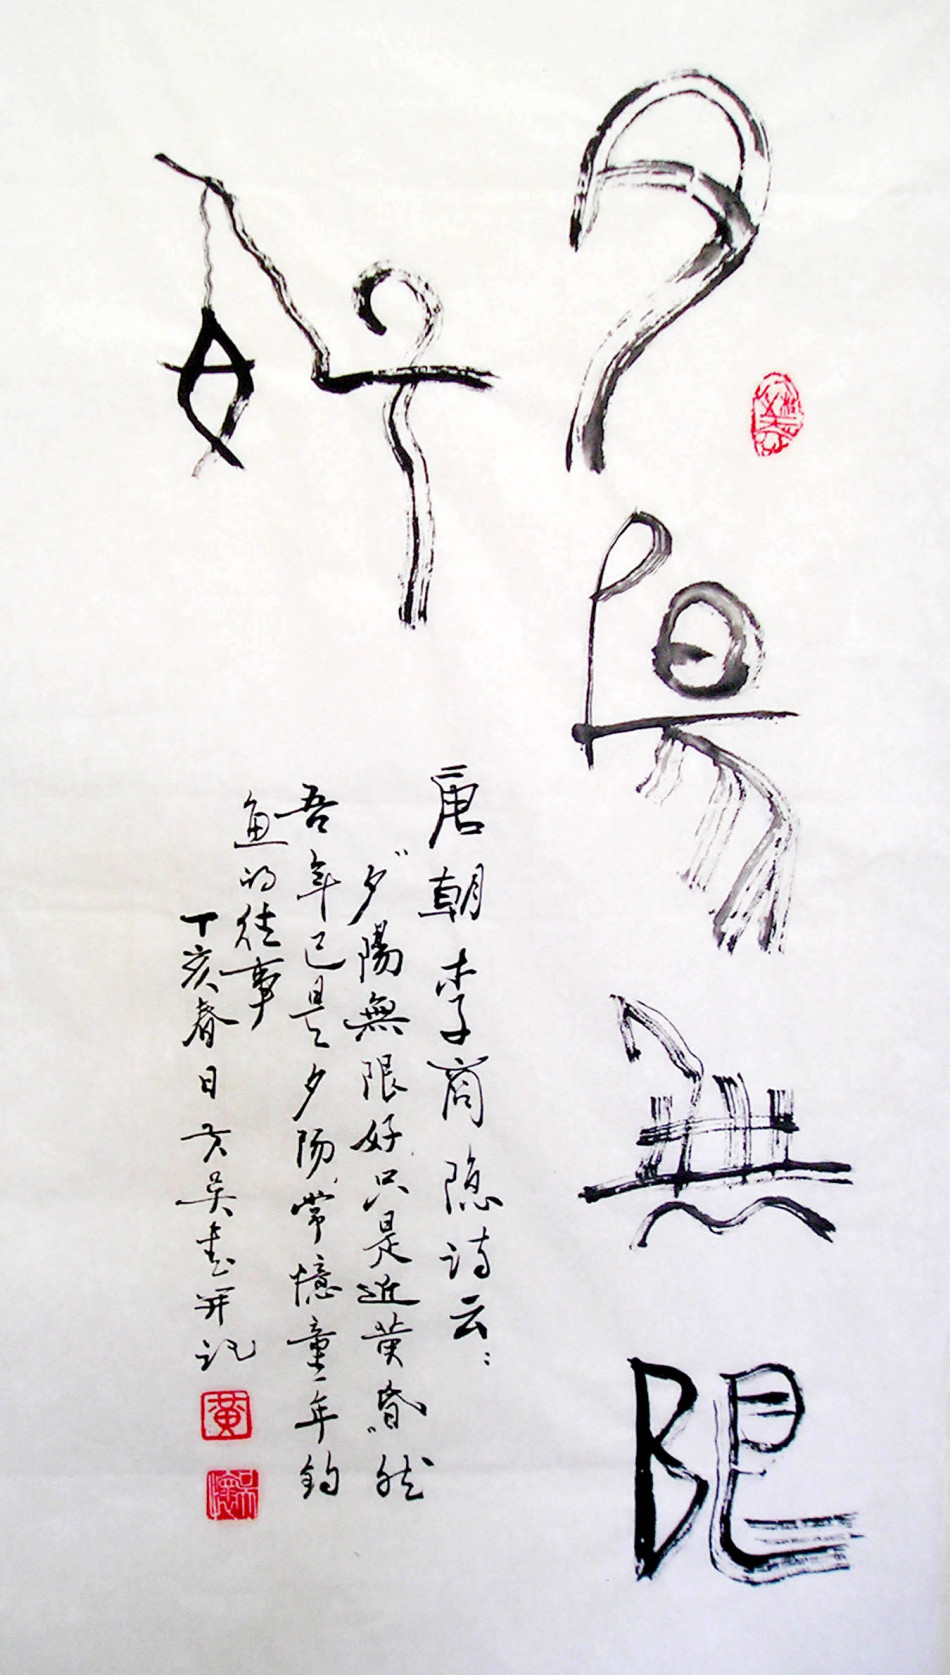 夕陽無限
好
唐朝李商隐詩云：
“夕陽無限好，只是近黄昏”然
吾年已是夕陽，常憶童年钓
魚的往事
丁亥春日六吴書并記
黄